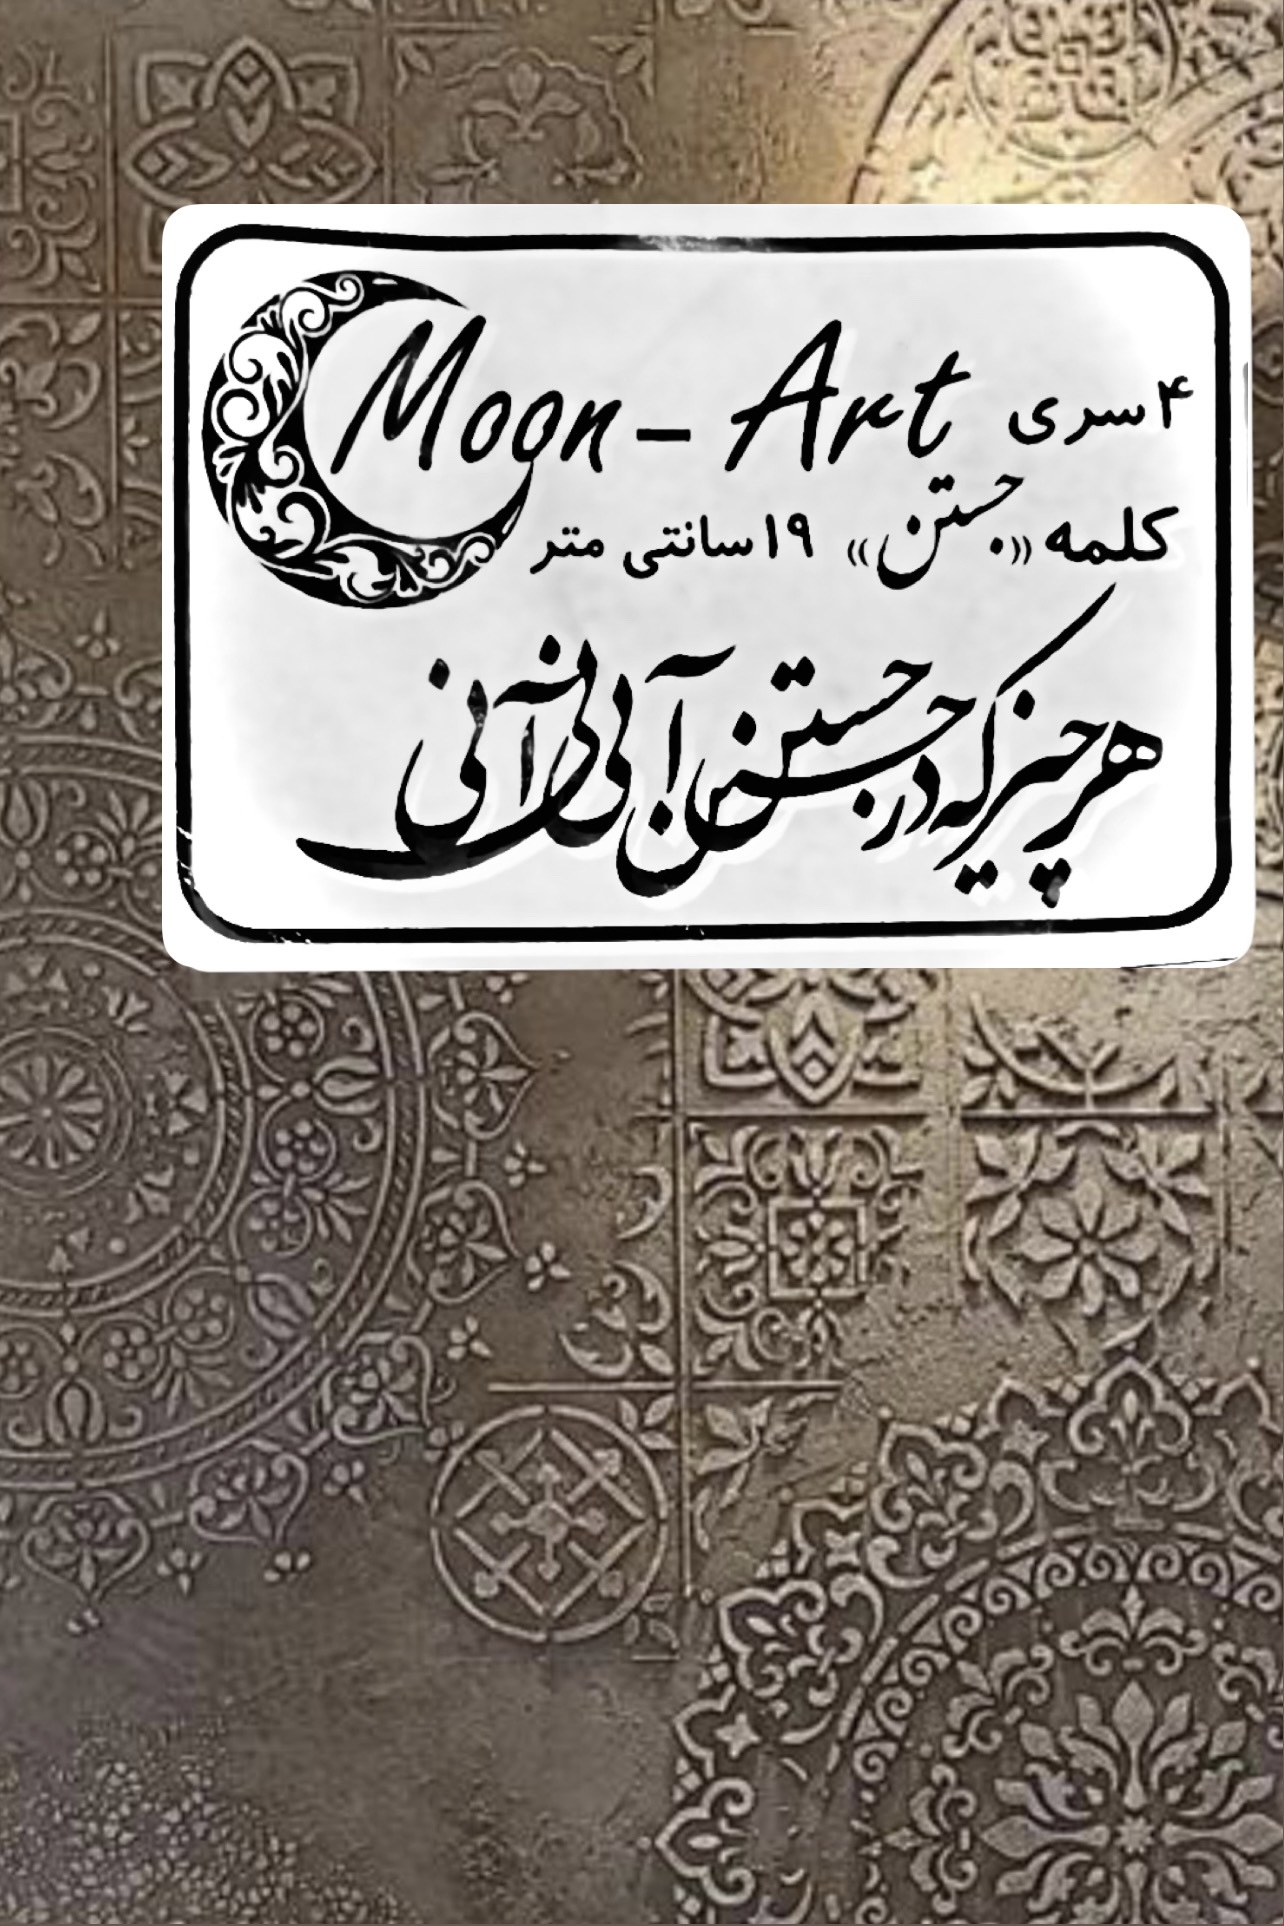 Moon - Art ۴ سری
کلمه «جستن» ۱۹ سانتی متر
هر چیز که در جستن آنی آنی